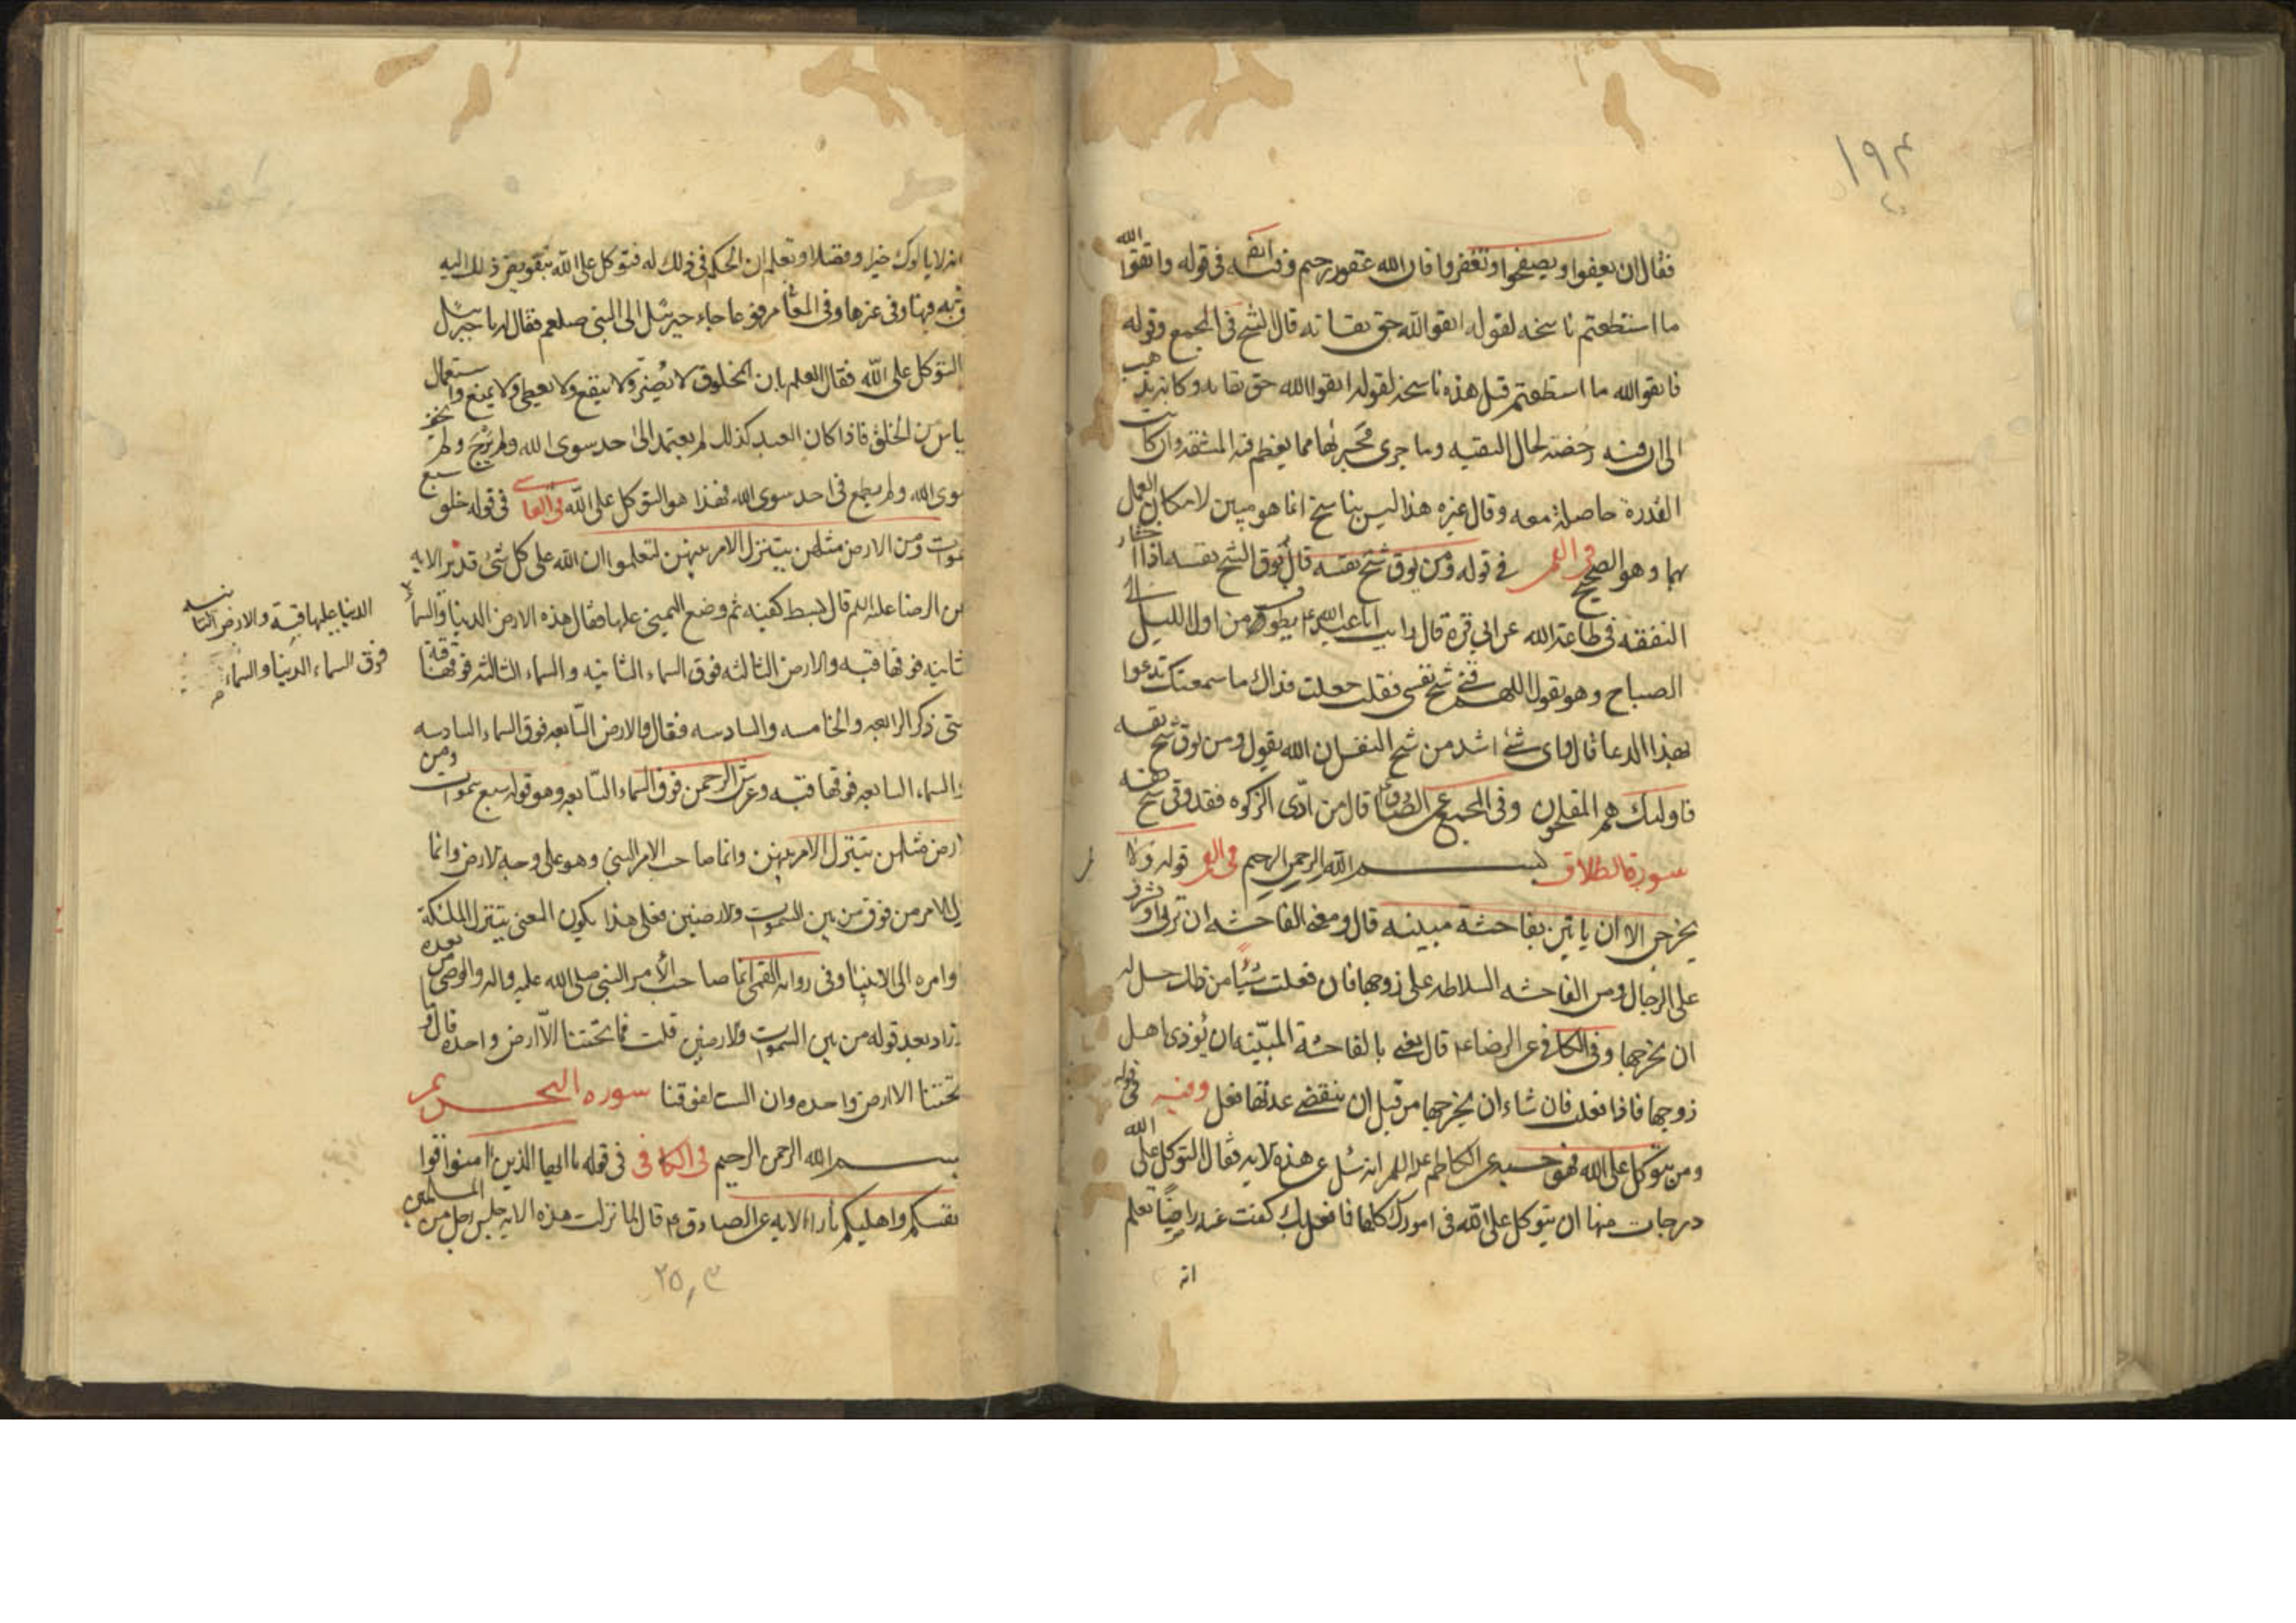 ١٩٤
فقال ان يعفوا ويصفحوا وتغفروا فان الله غفور رحيم وفيه ايضا في قوله واتقوا الله
ما استطعتم ناسخه لقوله اتقوا الله حق تقاته قال الشيخ في المجمع وقوله
فاتقو الله ما استطعتم قيل هذه ناسخه لقوله اتقوا الله حق تقاته وكانه يذهب
الى ان فيه رخصة لحال التقيه وما جرى مجريها مما يعظم فيه المشقه وان كانت
القدرة حاصلة معه وقال غيره هذا ليس بناسخ انما هو مبين لامكان العمل
بهما وهو الصحيح في القمي في قوله ومن يوق شح نفسه قال يوق الشح نفسه اذا اختار
النفقه في طاعة الله عن ابي قرة قال رايت ابا عبد الله ع يطوف من اول الليل الى
الصباح وهو يقول اللهم قني شح نفسي فقلت جعلت فداك ما سمعتك تدعوا
بهذا الدعا قال واي شئ اشد من شح النفس ان الله يقول ومن يوق شح نفسه
فاولئك هم المفلحون وفي المجمع عن الصادق ع قال من ادّى الزكوه فقد وقى شح نفسه
سورة الطلاق بسم الله الرحمن الرحيم في القمي قوله ولا
يخرجن الا ان ياتين بفاحشة مبينه قال ومعنى الفاحشه ان تزني او تشرف
على الرجال ومن الفاحشه السلاطه على زوجها فان فعلت شيئا من ذلك حل له
ان يخرجها وفي الكافي عن الرضا ع قال يعني بالفاحشة المبيّنه ان يؤذى اهل
زوجها فاذا فعلت فان شاء ان يخرجها من قبل ان ينقضي عدتها فعل وفيه في قوله
ومن يتوكل على الله فهو حسبه عن الكاظم عليه السلم انه سئل عن هذه الايه فقال التوكل على الله
درجات منها ان يتوكل على الله في امورك كلها فما فعل بك كنت عنه راضيًا تعلم
انه
انه لا يالوك خيرا وفضلا وتعلم ان الحكم في ذلك له فتوكل على الله بتفويض ذلك اليه
وثق به فيها وفي غيرها وفي المعاني مرفوعا جاء جبرئيل الى النبي صلعم فقال له يا جبرئيل
التوكل على الله فقال العلم بان المخلوق لا يضر ولا ينفع ولا يعطي ولا يمنع واستعمال
ياس من الخلق فاذا كان العبد كذلك لم يعتمد الى احد سوى الله ولم يرج ولم يخف
سوى الله ولم يطمع في احد سوى الله فهذا هو التوكل على الله في العياشي في قوله خلق سبع
سموات ومن الارض مثلهن يتنزل الامر بينهن لتعلموا ان الله على كل شئ قدير الايه
عن الرضا عليه السلم قال بسط كفيه ثم وضع اليمنى عليها فقال هذه الارض الدنيا والسماء
الدنيا عليها قبة والارض الثانيه
فوق السماء الدنيا والسماء
الثانيه فوقها قبه والارض الثالثه فوق السماء الثانيه والسماء الثالثه فوقها قبة
حتى ذكر الرابعه والخامسه والسادسه فقال والارض السابعه فوق السماء السادسه
والسماء السابعه فوقها قبه وعرش الرحمن فوق السماء السابعه وهو قوله سبع سموات ومن
الارض مثلهن يتنزل الامر بينهن وانما صاحب الامر النبي وهو على وجه الارض وانما
يتنزل الامر من فوق من بين السموات والارضين فعلى هذا يكون المعنى يتنزل الملئكة
وامره الى الانبيا وفي رواية القمي انما صاحب الامر النبي صلى الله عليه واله والوصي من بعده
وزاد بعد قوله من بين السموات والارضين قلت فما تحتنا الا ارض واحده قال وما
تحتنا الا ارض واحده وان الست لفوقنا سوره التحريم
بسم الله الرحمن الرحيم في الكافي في قوله يا ايها الذين امنوا قوا
انفسكم واهليكم نارا الايه عن الصادق ع قال لما نزلت هذه الايه جلس رجل من المسلمين